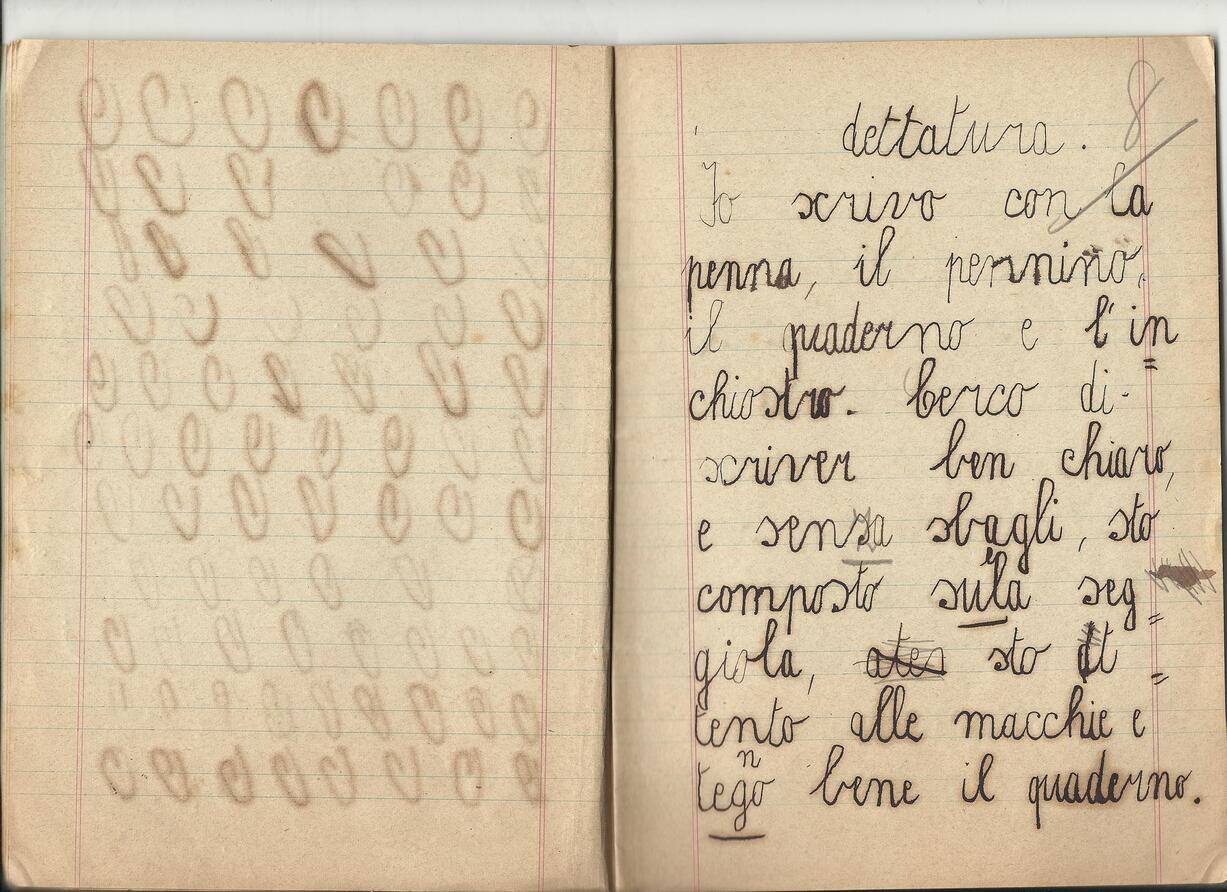 dettatura. 8
Io scrivo con la
penna, il pennino,
il quaderno e l'in=
chiostro. Cerco di-
scriver ben chiaro,
e senza sbagli, sto
composto sulla seg=
giola, sto at=
tento alle macchie e
tengo bene il quaderno.